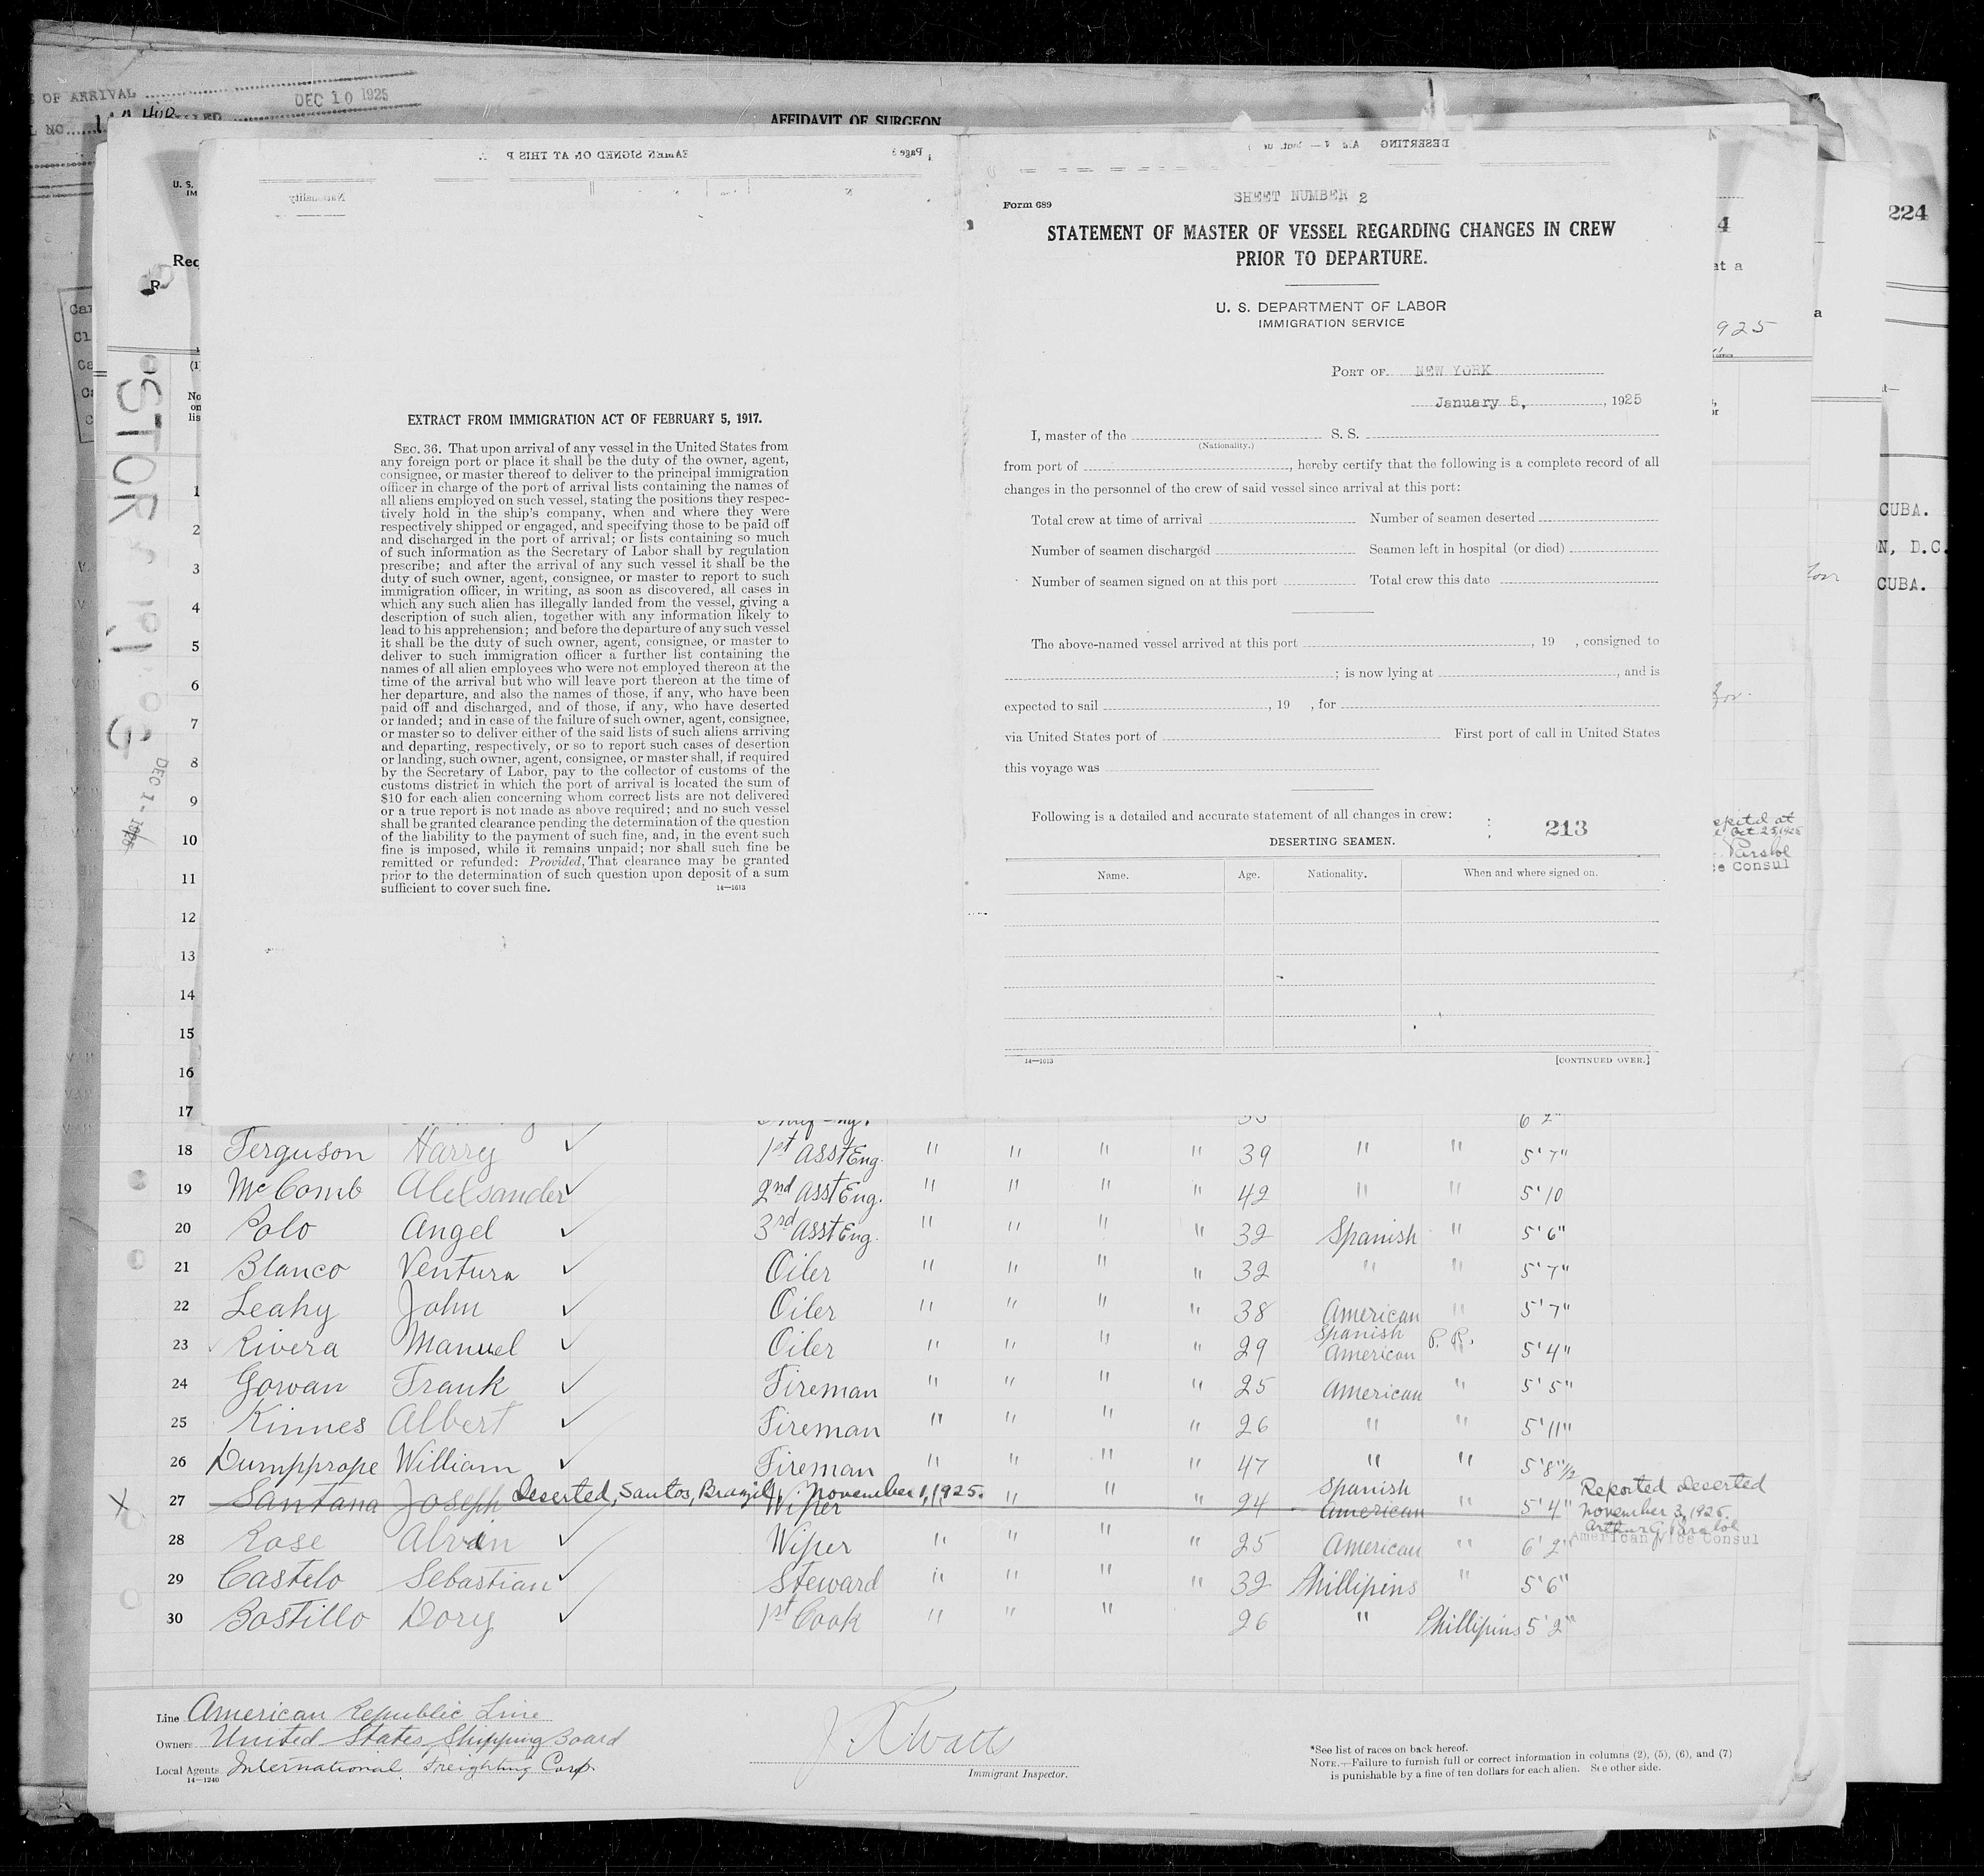 OF ARRIVAL
DEC 10 1925
AFFIDAVIT OF SURGEON
224
EXTRACT FROM IMMIGRATION ACT OF FEBRUARY 5, 1917.
SEC. 36. That upon arrival of any vessel in the United States from
any foreign port or place it shall be the duty of the owner, agent,
consignee, or master thereof to deliver to the principal immigration
officer in charge of the port of arrival lists containing the names of
all aliens employed on such vessel, stating the positions they respec-
tively hold in the ship's company, when and where they were
respectively shipped or engaged, and specifying those to be paid off
and discharged in the port of arrival; or lists containing so much
of such information as the Secretary of Labor shall by regulation
prescribe; and after the arrival of any such vessel it shall be the
duty of such owner, agent, consignee, or master to report to such
immigration officer, in writing, as soon as discovered, all cases in
which any such alien has illegally landed from the vessel, giving a
description of such alien, together with any information likely to
lead to his apprehension; and before the departure of any such vessel
it shall be the duty of such owner, agent, consignee, or master to
deliver to such immigration officer a further list containing the
names of all alien employees who were not employed thereon at the
time of the arrival but who will leave port thereon at the time of
her departure, and also the names of those, if any, who have been
paid off and discharged, and of those, if any, who have deserted
or landed; and in case of the failure of such owner, agent, consignee,
or master so to deliver either of the said lists of such aliens arriving
and departing, respectively, or so to report such cases of desertion
or landing, such owner, agent, consignee, or master shall, if required
by the Secretary of Labor, pay to the collector of customs of the
customs district in which the port of arrival is located the sum of
$10 for each alien concerning whom correct lists are not delivered
or a true report is not made as above required; and no such vessel
shall be granted clearance pending the determination of the question
of the liability to the payment of such fine, and, in the event such
fine is imposed, while it remains unpaid; nor shall such fine be
remitted or refunded: Provided, That clearance may be granted
prior to the determination of such question upon deposit of a sum
sufficient to cover such fine. 14—1613
SHEET NUMBER 2
Form 689
STATEMENT OF MASTER OF VESSEL REGARDING CHANGES IN CREW
PRIOR TO DEPARTURE.
U. S. DEPARTMENT OF LABOR
IMMIGRATION SERVICE
PORT OF NEW YORK
January 5, , 1925
I, master of the S. S.
(Nationality.)
from port of , hereby certify that the following is a complete record of all
changes in the personnel of the crew of said vessel since arrival at this port:
Total crew at time of arrival Number of seamen deserted
Number of seamen discharged Seamen left in hospital (or died)
Number of seamen signed on at this port Total crew this date
The above-named vessel arrived at this port , 19 , consigned to
; is now lying at , and is
expected to sail , 19 , for
via United States port of First port of call in United States
this voyage was
Following is a detailed and accurate statement of all changes in crew:
213
DESERTING SEAMEN.
Name. Age. Nationality. When and where signed on.
14—1613 [CONTINUED OVER.]
CUBA.
N, D.C.
CUBA.
1
2
3
4
5
6
7
8
9
10
11
12
13
14
15
16
17
18 Ferguson Harry ✓ 1st Asst Eng. " " " " 39 " " 5'7"
19 McComb Alelsander ✓ 2nd Asst Eng. " " " " 42 " " 5'10
20 Polo Angel ✓ 3rd Asst Eng. " " " " 32 Spanish " 5'6"
21 Blanco Ventura ✓ Oiler " " " " 32 " " 5'7"
22 Leahy John ✓ Oiler " " " " 38 American " 5'7"
23 Rivera Manuel ✓ Oiler " " " " 29 Spanish American P. R. " 5'4"
24 Gowan Frank ✓ Fireman " " " " 25 American " 5'5"
25 Kinnes Albert ✓ Fireman " " " " 26 " " 5'11"
26 Dumpprope William ✓ Fireman " " " " 47 " " 5'8"1/2
27 Santana Joseph Deserted, Santos, Brazil, November 1, 1925. Wiper " " " 24 Spanish American " 5'4" Reported Deserted
November 3, 1925.
American Vice Consul
28 Rose Alvin ✓ Wiper " " " " 25 American " 6'2"
29 Castelo Sebastian ✓ Steward " " " " 32 Phillipins " 5'6"
30 Bostillo Dory ✓ 1st Cook " " " 26 " Phillipins 5'2"
Line American Republic Line
Owners United States Shipping Board
Local Agents International Freighting Corp.
14—1240
Immigrant Inspector.
*See list of races on back hereof.
NOTE.—Failure to furnish full or correct information in columns (2), (5), (6), and (7)
is punishable by a fine of ten dollars for each alien. See other side.